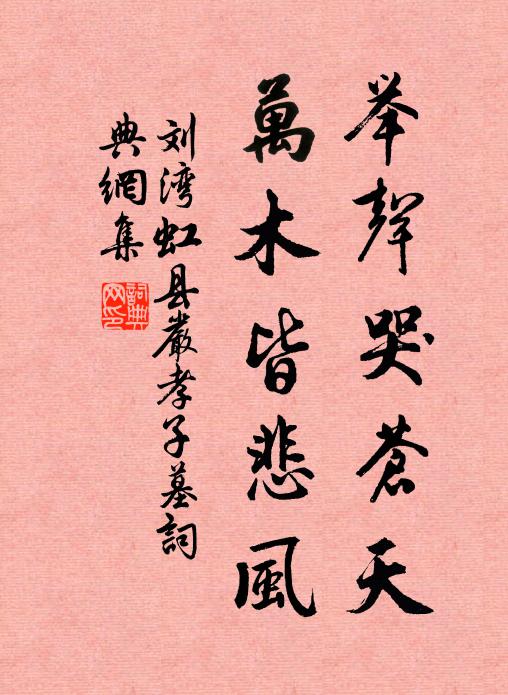 举聲哭蒼天
萬木皆悲風
刘湾虹县嚴孝子墓詞
典網集
詞典网印